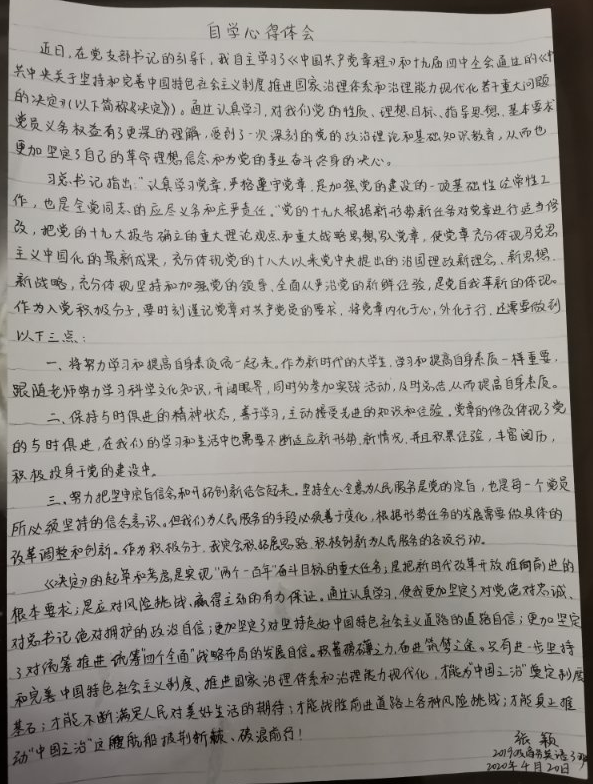 自学心得体会
近日,在党支部书记的引导下,我自主学习了《中国共产党章程》和十九届四中全会通过的《中
共中央关于坚持和完善中国特色社会主义制度推进国家治理体系和治理能力现代化若干重大问题
的决定》(以下简称《决定》)。通过认真学习,对我们党的性质、理想目标、指导思想、基本要求
党员义务权益有了更深的理解,受到了一次深刻的党的政治理论和基础知识教育,从而也
更加坚定了自己的革命理想信念和为党的事业奋斗终身的决心。
习总书记指出:"认真学习党章,严格遵守党章,是加强党的建设的一项基础性经常性工
作,也是全党同志的应尽义务和庄严责任。"党的十九大根据新形势新任务对党章进行适当修
改,把党的十九大报告确立的重大理论观点和重大战略思想写入党章,使党章充分体现马克思
主义中国化的最新成果,充分体现党的十八大以来党中央提出的治国理政新理念、新思想、
新战略,充分体现坚持和加强党的领导、全面从严治党的新鲜经验,是党自我革新的体现。
作为入党积极分子,要时刻谨记党章对共产党员的要求,将党章内化于心,外化于行,还需要做到
以下三点:
一、将努力学习和提高自身素质统一起来。作为新时代的大学生,学习和提高自身素质一样重要,
跟随老师努力学习科学文化知识,开阔眼界,同时多参加实践活动,及时总结,从而提高自身素质。
二、保持与时俱进的精神状态,善于学习,主动接受先进的知识和经验。党章的修改体现了党
的与时俱进,在我们的学习和生活中也需要不断适应新形势、新情况,并且积累经验,丰富阅历,
积极投身于党的建设中。
三、努力把坚守宗旨信念和开拓创新结合起来。坚持全心全意为人民服务是党的宗旨,也是每一个党员
所必须坚持的信念意识。但我们为人民服务的手段必须善于变化,根据形势任务的发展需要做具体的
改革调整和创新。作为积极分子,我定会积极拓展思路,积极创新为人民服务的各项行动。
《决定》的起草和考虑是实现"两个一百年"奋斗目标的重大任务;是把新时代改革开放推向前进的
根本要求;是应对风险挑战、赢得主动的有力保证。通过认真学习,使我更加坚定了对党绝对忠诚、
对总书记绝对拥护的政治自信;更加坚定了对坚持走好中国特色社会主义道路的道路自信;更加坚定
了对统筹推进、统筹"四个全面"战略布局的发展自信。积蓄磅礴之力,奋进筑梦之途。只有进一步坚持
和完善中国特色社会主义制度、推进国家治理体系和治理能力现代化,才能为"中国之治"奠定制度
基石;才能不断满足人民对美好生活的期待;才能战胜前进道路上各种风险挑战;才能真正推
动"中国之治"这艘航船披荆斩棘、破浪前行!
张颖
2019级商务英语3班
2020年4月20日